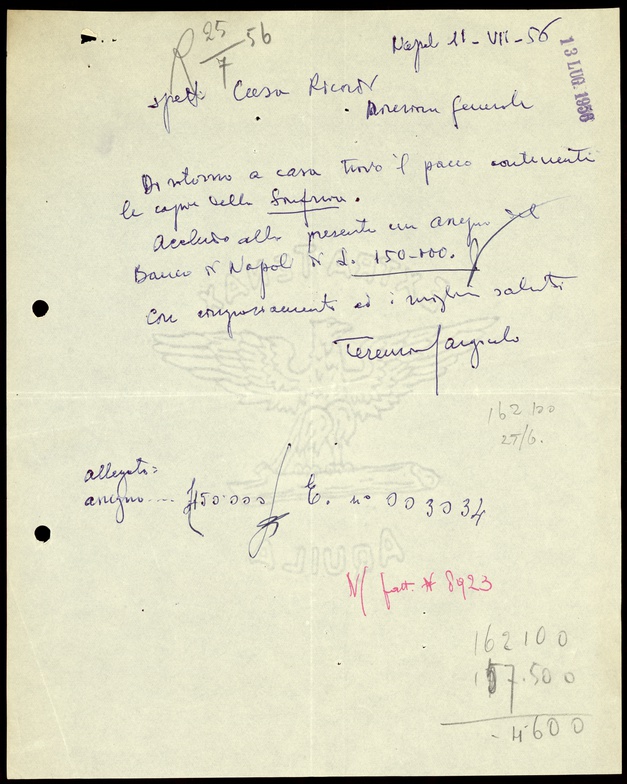 R 25/7 56
Napoli 11-VII-56
13 LUG. 1956
spett. Casa Ricordi
Direzione Generale
Di ritorno a casa trovo il pacco contenente
le copie della Sinfonia.
Accludo alla presente un assegno del
Banco di Napoli di L. 150.000.
Con ringraziamenti ed i migliori saluti
Terenzio Gargiulo
162.100
25/6.
allegato=
assegno.... £150.000 E. n° 003034
N/ fatt. N 8923
162100
157.500
4600
AQUILA